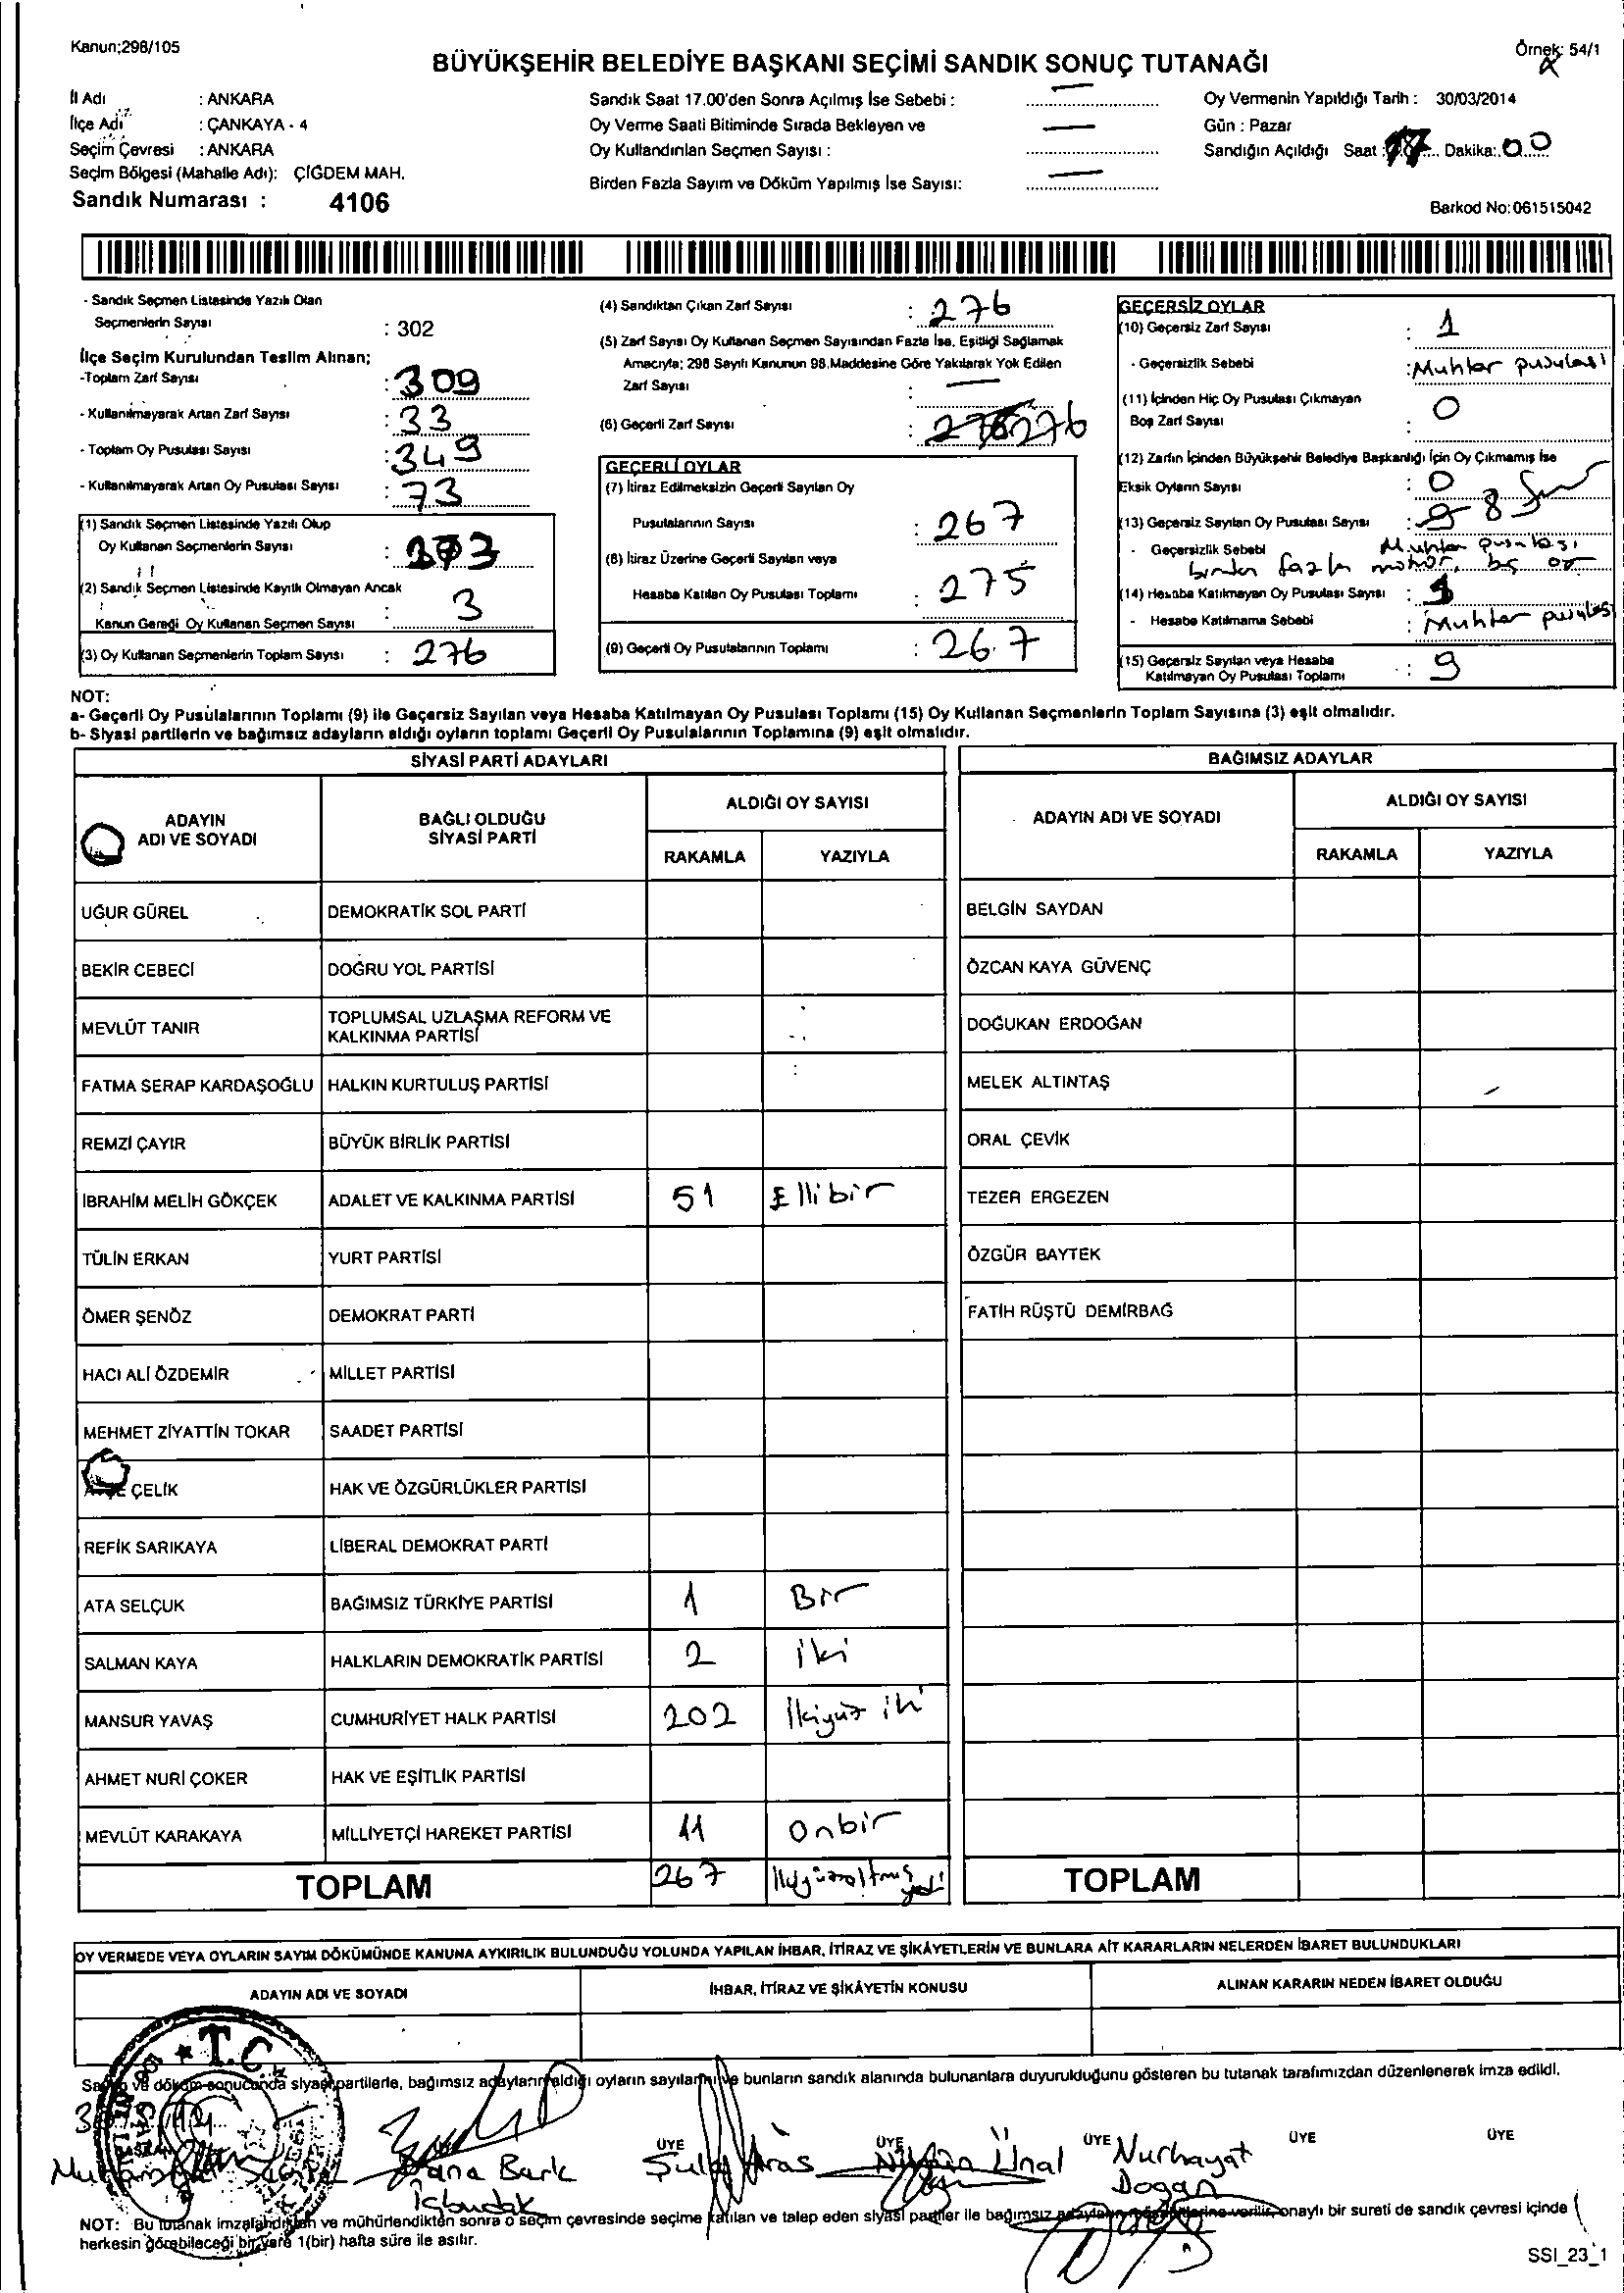 Kanun;298/105
Örnek: 54/1
BÜYÜKŞEHİR BELEDİYE BAŞKANI SEÇİMİ SANDIK SONUÇ TUTANAĞI
İl Adı : ANKARA
İlçe Adı : ÇANKAYA - 4
Seçim Çevresi : ANKARA
Seçim Bölgesi (Mahalle Adı): ÇİĞDEM MAH.
Sandık Numarası : 4106
Sandık Saat 17.00'den Sonra Açılmış İse Sebebi :
Oy Verme Saati Bitiminde Sırada Bekleyen ve
Oy Kullandırılan Seçmen Sayısı :
Birden Fazla Sayım ve Döküm Yapılmış İse Sayısı:
Oy Vermenin Yapıldığı Tarih : 30/03/2014
Gün : Pazar
Sandığın Açıldığı Saat : 17 Dakika: 00
Barkod No:061515042
- Sandık Seçmen Listesinde Yazılı Olan
Seçmenlerin Sayısı : 302
İlçe Seçim Kurulundan Teslim Alınan;
-Toplam Zarf Sayısı : 309
- Kullanılmayarak Artan Zarf Sayısı : 33
- Toplam Oy Pusulası Sayısı : 349
- Kullanılmayarak Artan Oy Pusulası Sayısı : 73
(1) Sandık Seçmen Listesinde Yazılı Olup
Oy Kullanan Seçmenlerin Sayısı : 273
(2) Sandık Seçmen Listesinde Kayıtlı Olmayan Ancak
Kanun Gereği Oy Kullanan Seçmen Sayısı : 3
(3) Oy Kullanan Seçmenlerin Toplam Sayısı : 276
(4) Sandıktan Çıkan Zarf Sayısı : 276
(5) Zarf Sayısı Oy Kullanan Seçmen Sayısından Fazla İse, Eşitliği Sağlamak
Amacıyla; 298 Sayılı Kanunun 98.Maddesine Göre Yakılarak Yok Edilen
Zarf Sayısı :
(6) Geçerli Zarf Sayısı : 276
GEÇERLİ OYLAR
(7) İtiraz Edilmeksizin Geçerli Sayılan Oy
Pusulalarının Sayısı : 267
(8) İtiraz Üzerine Geçerli Sayılan veya
Hesaba Katılan Oy Pusulası Toplamı : 275
(9) Geçerli Oy Pusulalarının Toplamı : 267
GEÇERSİZ OYLAR
(10) Geçersiz Zarf Sayısı : 1
- Geçersizlik Sebebi : Muhtar pusulası
(11) İçinden Hiç Oy Pusulası Çıkmayan
Boş Zarf Sayısı : 0
(12) Zarfın İçinden Büyükşehir Belediye Başkanlığı İçin Oy Çıkmamış İse
Eksik Oyların Sayısı : 0
(13) Geçersiz Sayılan Oy Pusulası Sayısı : 8
- Geçersizlik Sebebi Muhtar pusulası
birden fazla mühür, boş oy
(14) Hesaba Katılmayan Oy Pusulası Sayısı : 1
- Hesaba Katılmama Sebebi : Muhtar pusulası
(15) Geçersiz Sayılan veya Hesaba
Katılmayan Oy Pusulası Toplamı : 9
NOT:
a- Geçerli Oy Pusulalarının Toplamı (9) ile Geçersiz Sayılan veya Hesaba Katılmayan Oy Pusulası Toplamı (15) Oy Kullanan Seçmenlerin Toplam Sayısına (3) eşit olmalıdır.
b- Siyasi partilerin ve bağımsız adayların aldığı oyların toplamı Geçerli Oy Pusulalarının Toplamına (9) eşit olmalıdır.
SİYASİ PARTİ ADAYLARI
ADAYIN ADI VE SOYADI
BAĞLI OLDUĞU SİYASİ PARTİ
ALDIĞI OY SAYISI
RAKAMLA YAZIYLA
UĞUR GÜREL DEMOKRATİK SOL PARTİ
BEKİR CEBECİ DOĞRU YOL PARTİSİ
MEVLÜT TANIR TOPLUMSAL UZLAŞMA REFORM VE
KALKINMA PARTİSİ
FATMA SERAP KARDAŞOĞLU HALKIN KURTULUŞ PARTİSİ
REMZİ ÇAYIR BÜYÜK BİRLİK PARTİSİ
İBRAHİM MELİH GÖKÇEK ADALET VE KALKINMA PARTİSİ 51 Ellibir
TÜLİN ERKAN YURT PARTİSİ
ÖMER ŞENÖZ DEMOKRAT PARTİ
HACI ALİ ÖZDEMİR MİLLET PARTİSİ
MEHMET ZİYATTİN TOKAR SAADET PARTİSİ
ÇELİK HAK VE ÖZGÜRLÜKLER PARTİSİ
REFİK SARIKAYA LİBERAL DEMOKRAT PARTİ
ATA SELÇUK BAĞIMSIZ TÜRKİYE PARTİSİ 1 Bir
SALMAN KAYA HALKLARIN DEMOKRATİK PARTİSİ 2 iki
MANSUR YAVAŞ CUMHURİYET HALK PARTİSİ 202 İkiyüz iki
AHMET NURİ ÇOKER HAK VE EŞİTLİK PARTİSİ
MEVLÜT KARAKAYA MİLLİYETÇİ HAREKET PARTİSİ 11 onbir
TOPLAM 267 İkiyüzaltmış yedi
BAĞIMSIZ ADAYLAR
ADAYIN ADI VE SOYADI
ALDIĞI OY SAYISI
RAKAMLA YAZIYLA
BELGİN SAYDAN
ÖZCAN KAYA GÜVENÇ
DOĞUKAN ERDOĞAN
MELEK ALTINTAŞ
ORAL ÇEVİK
TEZER ERGEZEN
ÖZGÜR BAYTEK
FATİH RÜŞTÜ DEMİRBAĞ
TOPLAM
OY VERMEDE VEYA OYLARIN SAYIM DÖKÜMÜNDE KANUNA AYKIRILIK BULUNDUĞU YOLUNDA YAPILAN İHBAR, İTİRAZ VE ŞİKÂYETLERİN VE BUNLARA AİT KARARLARIN NELERDEN İBARET BULUNDUKLARI
ADAYIN ADI VE SOYADI
İHBAR, İTİRAZ VE ŞİKÂYETİN KONUSU
ALINAN KARARIN NEDEN İBARET OLDUĞU
T.C.
Sayım ve döküm sonucunda siyasi partilerle, bağımsız adayların aldığı oyların sayılarını ve bunların sandık alanında bulunanlara duyurulduğunu gösteren bu tutanak tarafımızdan düzenlenerek imza edildi.
ÜYE ÜYE ÜYE ÜYE ÜYE
Bark Şule Aras Ünal Nurhayat
Doğan
NOT: Bu tutanak imzalandıktan ve mühürlendikten sonra o seçim çevresinde seçime katılan ve talep eden siyasi partiler ile bağımsız onaylı bir sureti de sandık çevresi içinde
herkesin görebileceği bir yere 1(bir) hafta süre ile asılır.
SSI_23_1